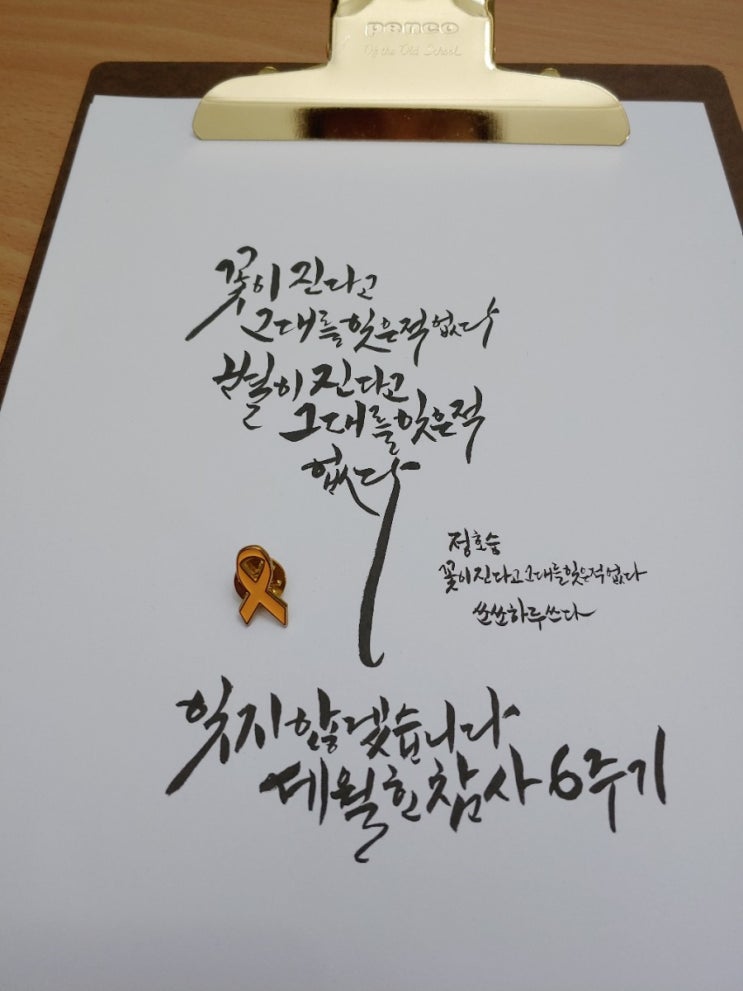 penco
Of the Old School
꽃이 진다고
그대를 잊은적 없다
별이 진다고
그대를 잊은적
없다
정호승
꽃이 진다고 그대를 잊은적 없다
쓴쓴하루쓰다
잊지 않겠습니다
세월호 참사 6주기